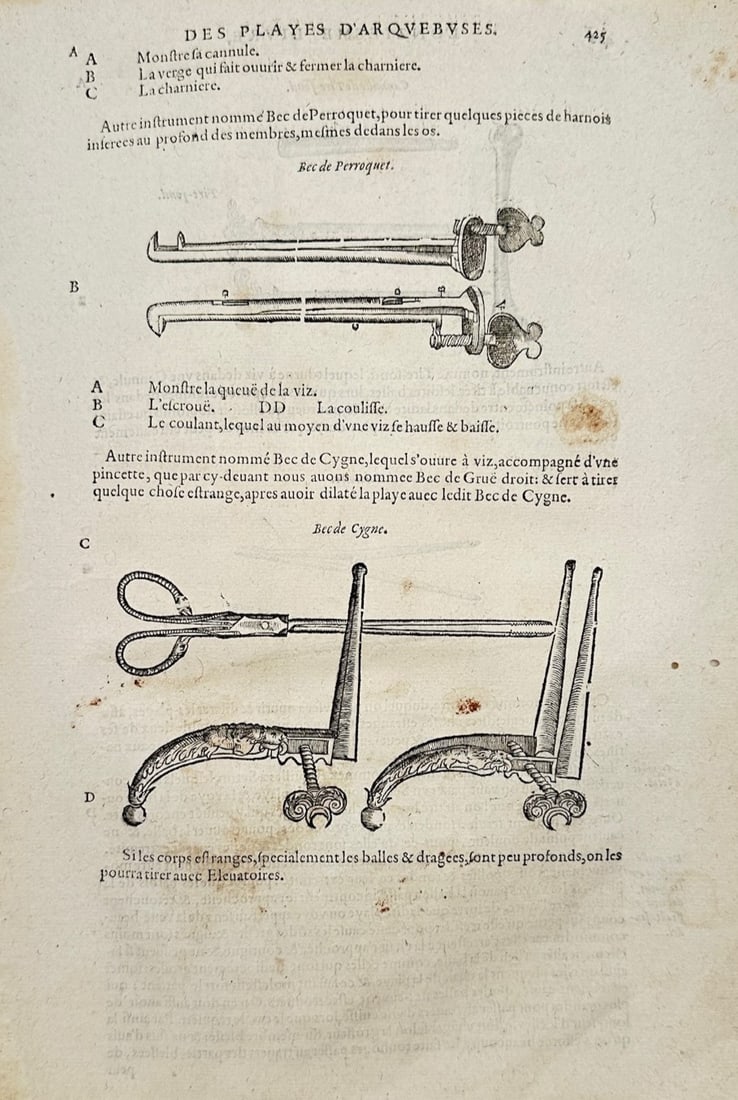 DES PLAYES D'ARQVEBVSES. 425
A A Monſtre ſa cannule.
B La verge qui fait ouurir & fermer la charniere.
C La charniere.
Autre inſtrument nommé Bec de Perroquet, pour tirer quelques pieces de harnois
inſerees au profond des membres, meſmes dedans les os.
Bec de Perroquet.
B
A
A Monſtre la queuë de la viz.
B L'eſcrouë. DD La couliſſe.
C Le coulant, lequel au moyen d'vne viz ſe hauſſe & baiſſe.
Autre inſtrument nommé Bec de Cygne, lequel s'ouure à viz, accompagné d'vne
pincette, que par cy-deuant nous auons nommee Bec de Gruë droit: & ſert à tirer
quelque choſe eſtrange, apres auoir dilaté la playe auec ledit Bec de Cygne.
Bec de Cygne.
C
D
Si les corps eſtranges, ſpecialement les balles & dragees, ſont peu profonds, on les
pourra tirer auec Eleuatoires.